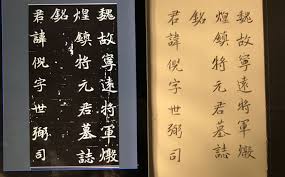 魏故寧遠將軍燉
煌鎮將元君墓誌
銘
君諱倪字世弼司
魏故寧遠將軍燉
煌鎮將元君墓誌
銘
君諱倪字世弼司